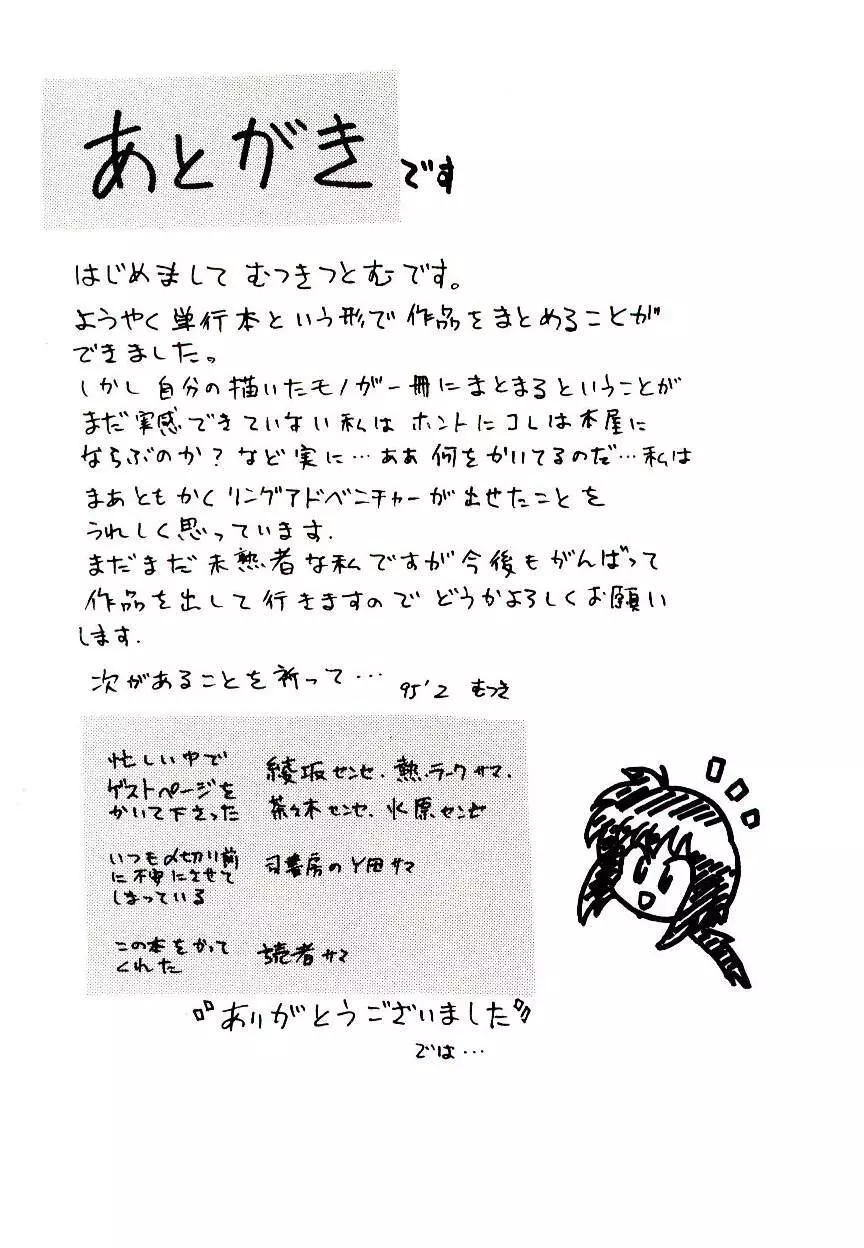 あとがきです
はじめまして むつきつとむです。
ようやく単行本という形で作品をまとめることが
できました。
しかし自分の描いたモノが一冊にまとまるということが
まだ実感できていない私は ホントにコレは本屋に
ならぶのか？など実に…ああ 何をかいてるのだ…私は
まあともかくリングアドベンチャーが出せたことを
うれしく思っています.
まだまだ未熟者な私ですが今後もがんばって
作品を出して行きますので どうかよろしくお願い
します.
次があることを祈って… 95'2 むつき
忙しい中で
ゲストページを
かいて下さった
綾坂センセ、熱、ラークサマ.
茶々木センセ、水原センセ
いつも〆切り前
に不安にさせて
しまっている
司書房のY田サマ
この本をかって
くれた
読者サマ
『ありがとうございました』
では…